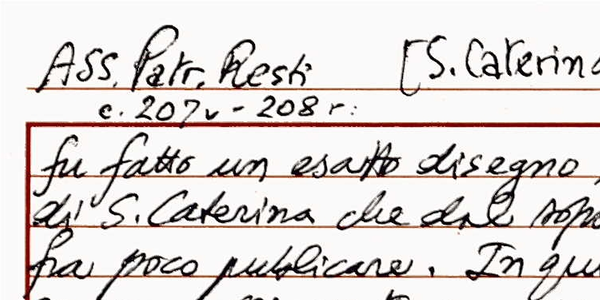 Ass. Patr. Resti [S. Caterina
c. 207v - 208 r:
fu fatto un esatto disegno,
di S. Caterina che dal sopr
fra poco publicare. In qu